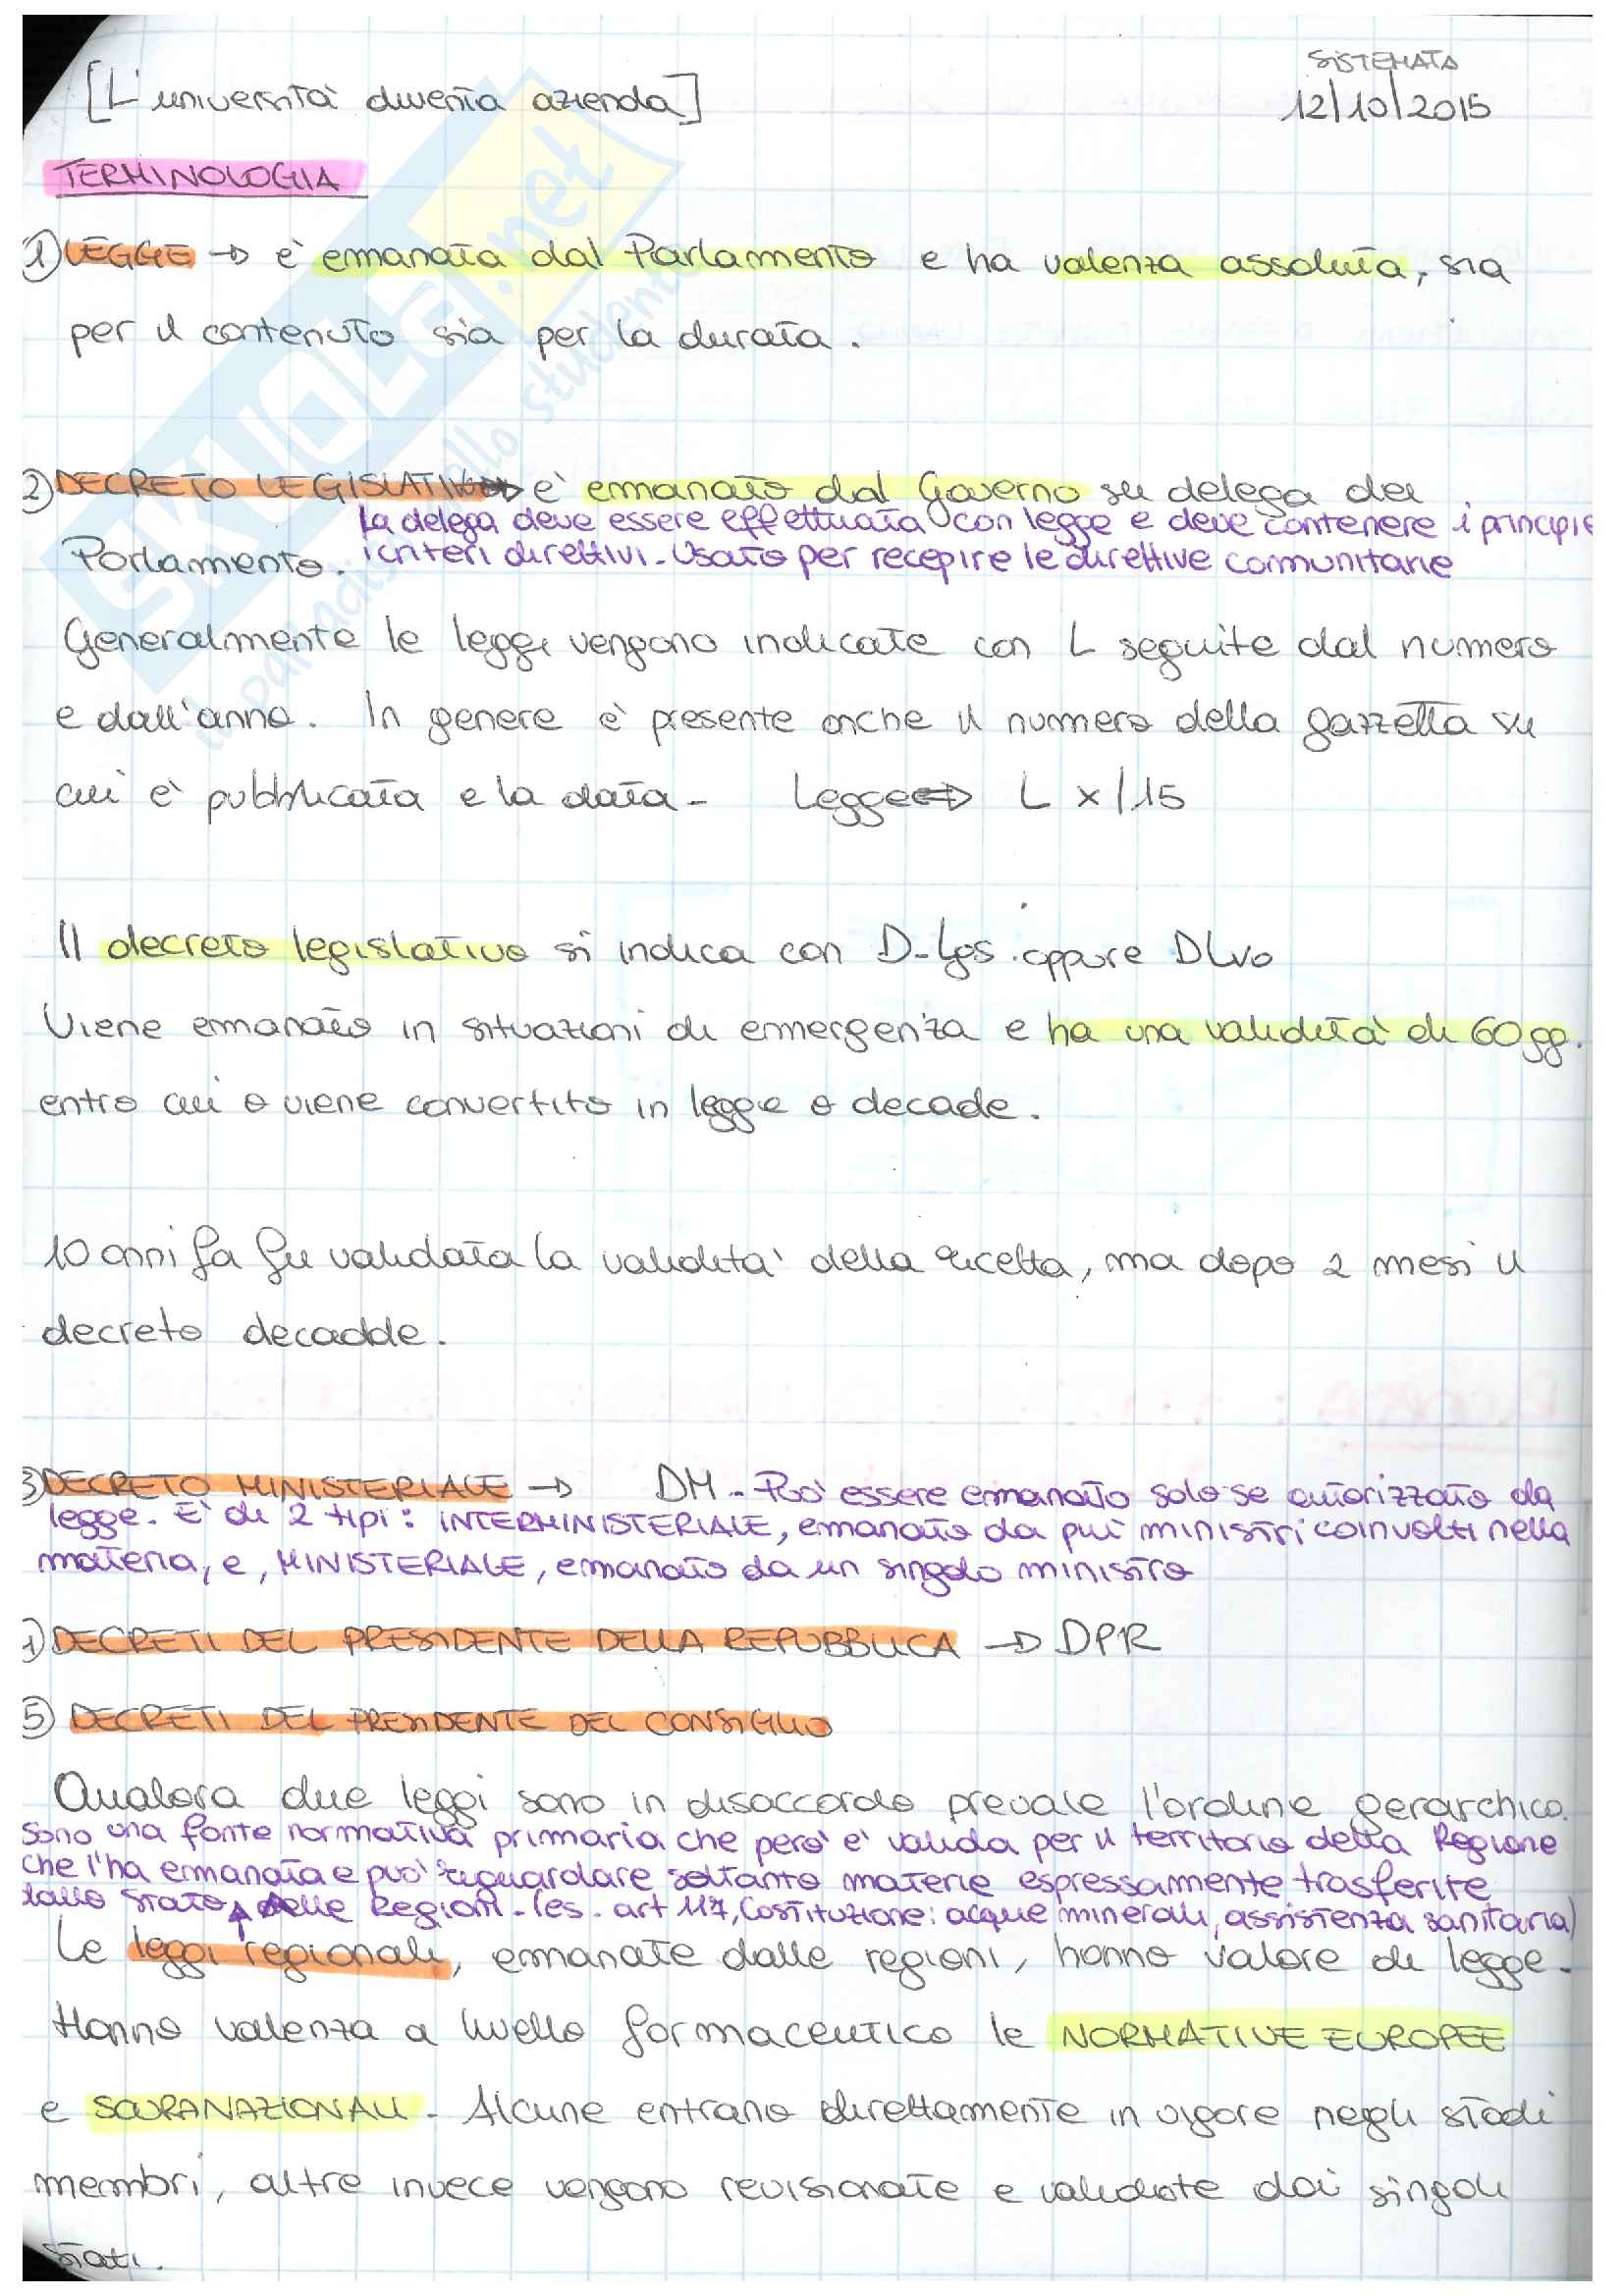 SISTEMATA
[L'università diventa azienda] 12/10/2015
TERMINOLOGIA
1) LEGGE → è emanata dal Parlamento e ha valenza assoluta, sia
per il contenuto sia per la durata.
2) DECRETO LEGISLATIVO → è emanato dal Governo su delega del
la delega deve essere effettuata con legge e deve contenere i principi e
Parlamento. i criteri direttivi. Usato per recepire le direttive comunitarie
Generalmente le leggi vengono indicate con L seguite dal numero
e dall'anno. In genere è presente anche il numero della gazzetta su
cui è pubblicata e la data. Legge → L x/15
Il decreto legislativo si indica con D.lgs. oppure DLvo
Viene emanato in situazioni di emergenza e ha una validità di 60 gg.
entro cui o viene convertito in legge o decade.
10 anni fa fu validata la validità della ricetta, ma dopo 2 mesi il
decreto decadde.
3) DECRETO MINISTERIALE → DM. Può essere emanato solo se autorizzato da
legge. E' di 2 tipi: INTERMINISTERIALE, emanato da più ministri coinvolti nella
materia, e, MINISTERIALE, emanato da un singolo ministro
) DECRETI DEL PRESIDENTE DELLA REPUBBLICA → DPR
5) DECRETI DEL PRESIDENTE DEL CONSIGLIO
Qualora due leggi sono in disaccordo prevale l'ordine gerarchico.
Sono una fonte normativa primaria che però è valida per il territorio della Regione
che l'ha emanata e può riguardare soltanto materie espressamente trasferite
dallo Stato alle Regioni. (es. art 117, Costituzione: acque minerali, assistenza sanitaria)
Le leggi regionali, emanate dalle regioni, hanno valore di legge.
Hanno valenza a livello farmaceutico le NORMATIVE EUROPEE
e SOVRANAZIONALI. Alcune entrano direttamente in vigore negli stadi
membri, altre invece vengono revisionate e validate dai singoli
stati.
SKUOLA.net
il paradiso dello studente